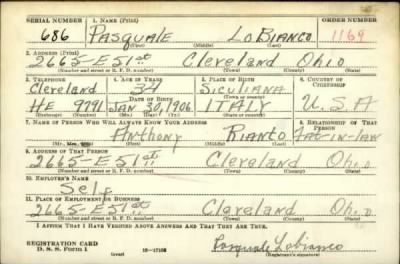 SERIAL NUMBER 1. NAME (Print) ORDER NUMBER
686 PASQUALE LO BIANCO 1169
(First) (Middle) (Last)
2. ADDRESS (Print)
2665-E 51 st. Cleveland Ohio
(Number and street or R. F. D. number) (Town) (County) (State)
3. TELEPHONE 4. AGE IN YEARS 5. PLACE OF BIRTH 6. COUNTRY OF CITIZENSHIP
Cleveland 34 SICULIANA
DATE OF BIRTH (Town or county)
HE 9791 JAN 30, 1906 ITALY U.S.A
(Exchange) (Number) (Mo.) (Day) (Yr.) (State or country)
7. NAME OF PERSON WHO WILL ALWAYS KNOW YOUR ADDRESS 8. RELATIONSHIP OF THAT PERSON
Anthony Rianto Fat-in-law
(Mr., Mrs., Miss) (First) (Middle) (Last)
9. ADDRESS OF THAT PERSON
2665-E 51 st. Cleveland Ohio
(Number and street or R. F. D. number) (Town) (County) (State)
10. EMPLOYER'S NAME
Self
11. PLACE OF EMPLOYMENT OR BUSINESS
2665-E 51 st. Cleveland Ohio
(Number and street or R. F. D. number) (Town) (County) (State)
I AFFIRM THAT I HAVE VERIFIED ABOVE ANSWERS AND THAT THEY ARE TRUE.
REGISTRATION CARD
D. S. S. Form 1 (over) 16—17105 Pasquale Lobianco
(Registrant's signature)